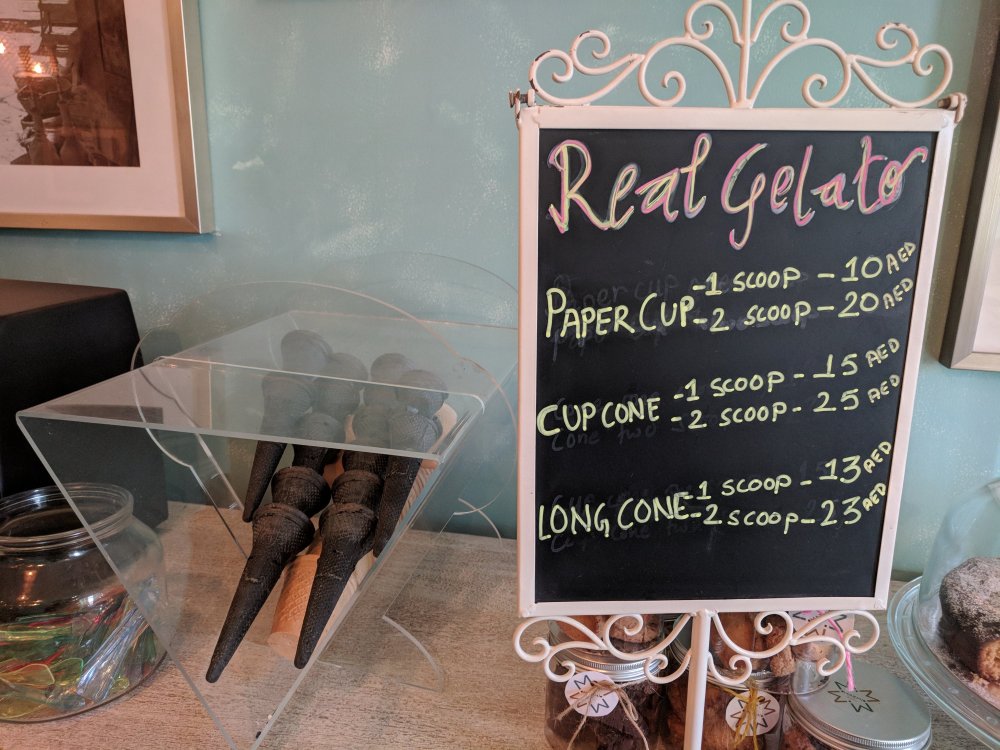 Real Gelato
PAPER CUP -1 SCOOP - 10 AED
-2 SCOOP - 20 AED
CUP CONE -1 SCOOP - 15 AED
-2 SCOOP - 25 AED
LONG CONE -1 SCOOP - 13 AED
-2 SCOOP - 23 AED